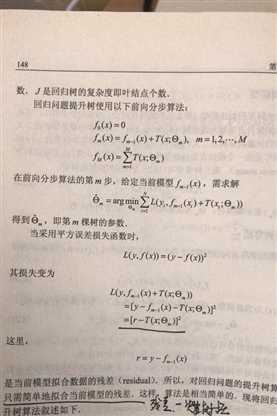 148
第
数，J是回归树的复杂度即叶结点个数.
回归问题提升树使用以下前向分步算法：
f₀(x)=0
fₘ(x)=fₘ₋₁(x)+T(x;Θₘ), m=1,2,⋯,M
f_M(x)=∑_{m=1}^{M}T(x;Θₘ)
在前向分步算法的第m步，给定当前模型fₘ₋₁(x)，需求解
Θ̂ₘ=arg min_{Θₘ}∑_{i=1}^{N}L(yᵢ,fₘ₋₁(xᵢ)+T(xᵢ;Θₘ))
得到Θ̂ₘ，即第m棵树的参数.
当采用平方误差损失函数时，
L(y,f(x))=(y−f(x))²
其损失变为
L(y,fₘ₋₁(x)+T(x;Θₘ))
=[y−fₘ₋₁(x)−T(x;Θₘ)]²
=[r−T(x;Θₘ)]²
这里，
r=y−fₘ₋₁(x)
是当前模型拟合数据的残差（residual）. 所以，对回归问题的提升树算
只需简单地拟合当前模型的残差. 这样，算法是相当简单的. 现将回归
升树算法叙述如下.